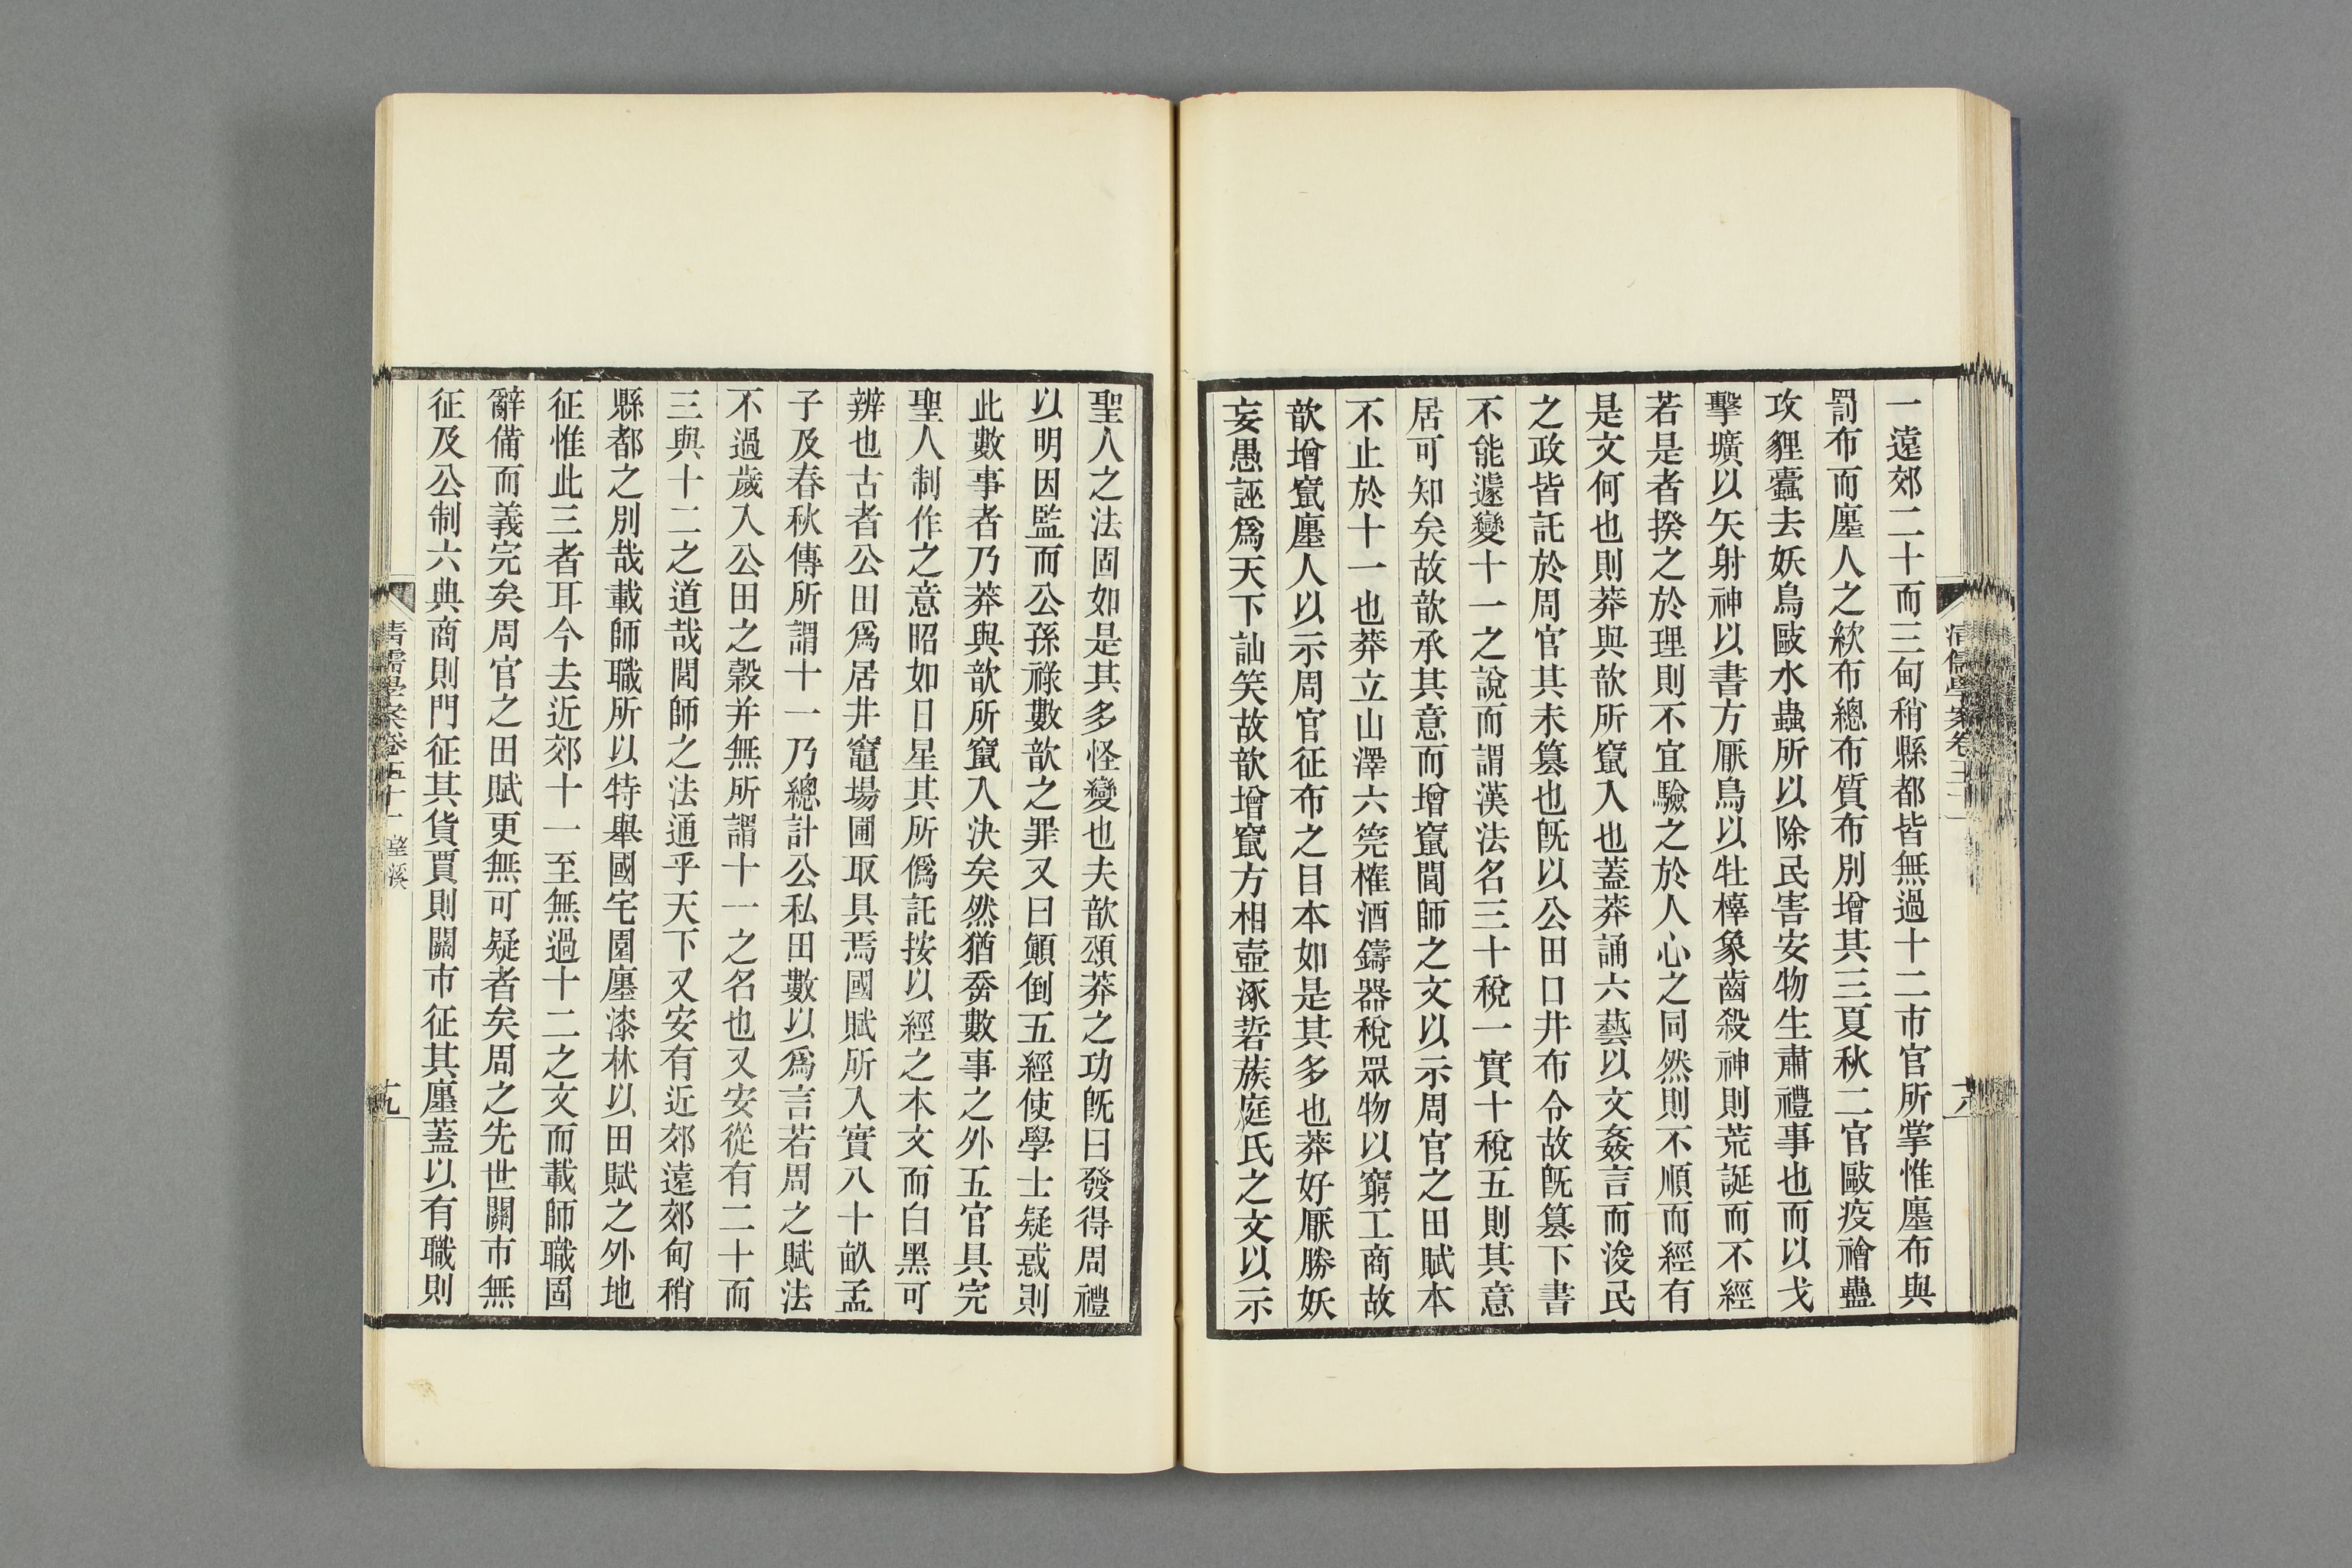 一遠郊二十而三甸稍縣都皆無過十二市官所掌惟廛布與
罰布而廛人之絘布總布質布別增其三夏秋二官敺疫禬蠱
攻貍蠹去妖鳥敺水蟲所以除民害安物生肅禮事也而以戈
擊壙以矢射神以書方厭鳥以牡橭象齒殺神則荒誕而不經
若是者揆之於理則不宜驗之於人心之同然則不順而經有
是文何也則莽與歆所竄入也蓋莽誦六藝以文姦言而浚民
之政皆託於周官其未篡也旣以公田口井布令故旣篡下書
不能遽變十一之說而謂漢法名三十稅一實十稅五則其意
居可知矣故歆承其意而增竄閭師之文以示周官之田賦本
不止於十一也莽立山澤六筦榷酒鑄器稅眾物以窮工商故
歆增竄廛人以示周官征布之目本如是其多也莽好厭勝妖
妄愚誣爲天下訕笑故歆增竄方相壺涿硩蔟庭氏之文以示
聖人之法固如是其多怪變也夫歆頌莽之功旣曰發得周禮
以明因監而公孫祿數歆之罪又曰顚倒五經使學士疑惑則
此數事者乃莽與歆所竄入決矣然猶吝數事之外五官具完
聖人制作之意昭如日星其所僞託按以經之本文而白黑可
辨也古者公田爲居井竈場圃取具焉國賦所入實八十畝孟
子及春秋傳所謂十一乃總計公私田數以爲言若周之賦法
不過歲入公田之穀并無所謂十一之名也又安從有二十而
三與十二之道哉閭師之法通乎天下又安有近郊遠郊甸稍
縣都之別哉載師職所以特舉國宅園廛漆林以田賦之外地
征惟此三者耳今去近郊十一至無過十二之文而載師職固
辭備而義完矣周官之田賦更無可疑者矣周之先世關市無
征及公制六典商則門征其貨賈則關市征其廛蓋以有職則
清儒學案卷五十一 望溪
十九